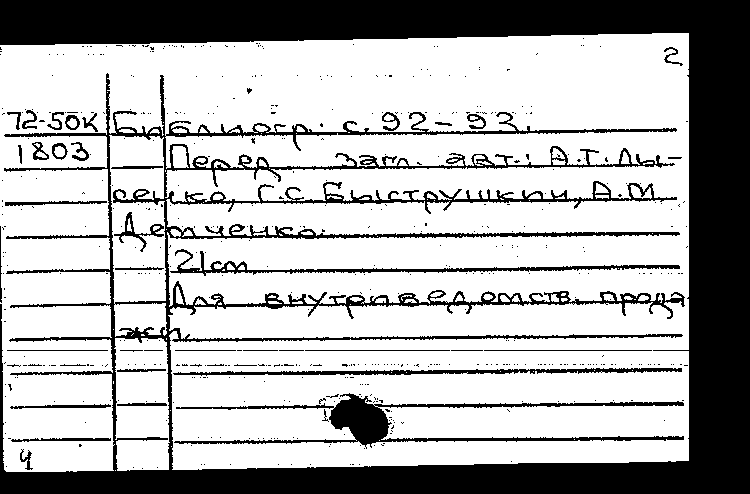 2
72-50к Библиогр. с. 92-93.
1803 Перед загл. авт.: А.Т. Лы-
сенко, Г.С. Быструшкин, А.М.
Демченко.
21 cm
Для внутриведомств. прода-
жи.
4